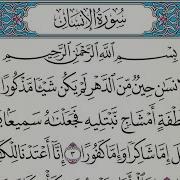 سُورَةُ الْإِنسَانِ
بِسْمِ ٱللَّهِ ٱلرَّحْمَٰنِ ٱلرَّحِيمِ
نسَٰنِ حِينٌ مِّنَ ٱلدَّهْرِ لَمْ يَكُن شَيْـًٔا مَّذْكُورًا
طْفَةٍ أَمْشَاجٍ نَّبْتَلِيهِ فَجَعَلْنَٰهُ سَمِيعًۢا
لَ إِمَّا شَاكِرًا وَإِمَّا كَفُورًا ٣ إِنَّآ أَعْتَدْنَا لِلْكَ